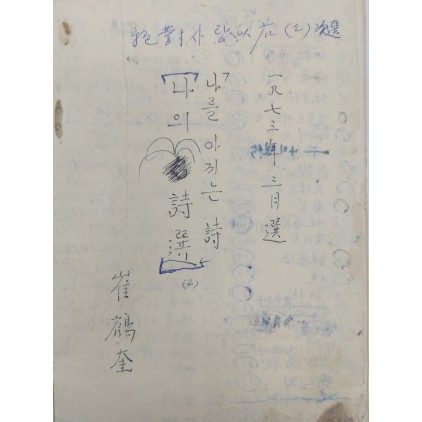 사랑以后 (2) 次選
一九七三年 三月 選
나를 아끼는 詩
나의 詩選
(2)
崔鶴奎